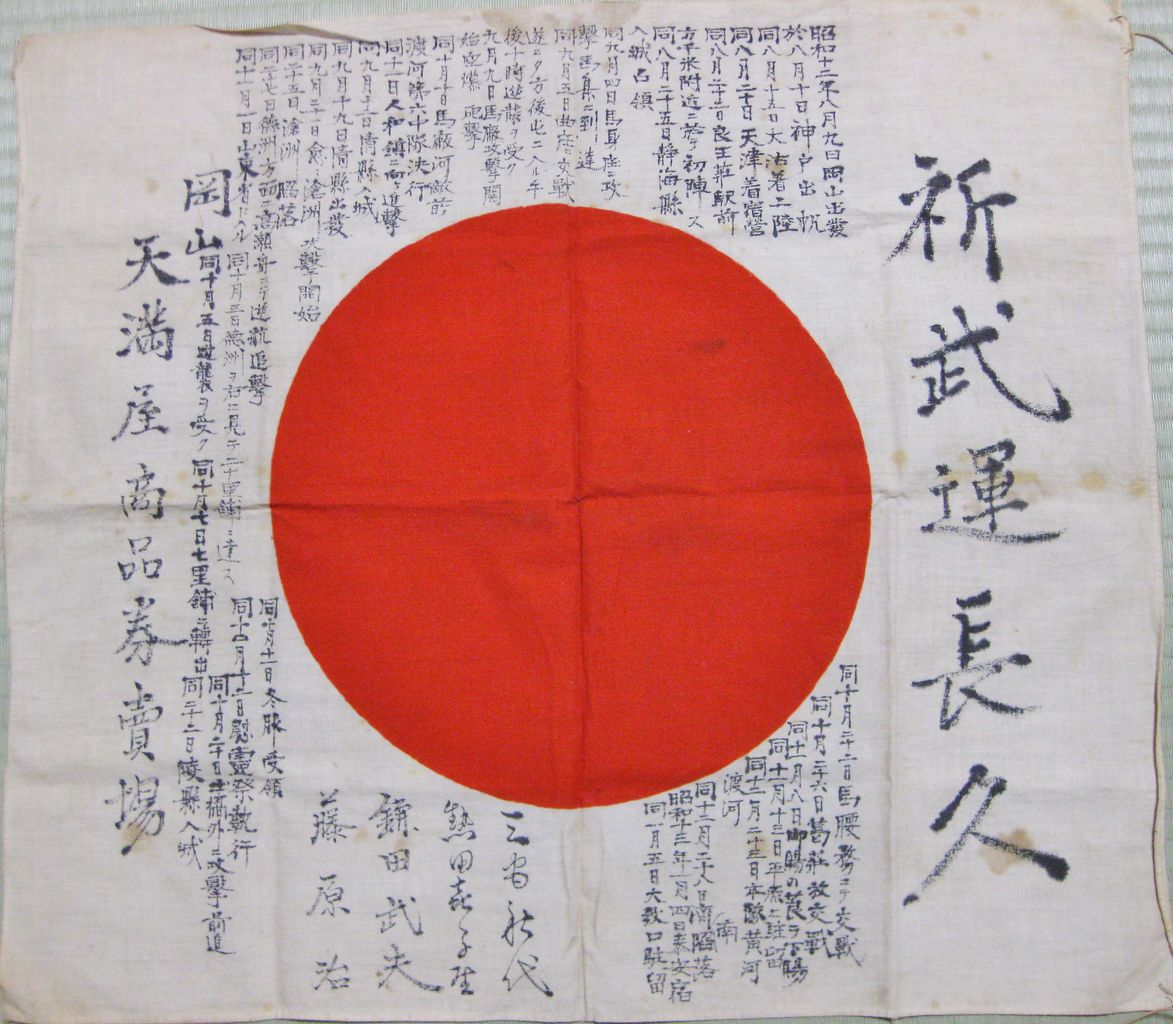 祈武運長久
昭和十二年八月九日岡山出發
於八月十日神戸出帆
同八月十五日大沽着上陸
同八月二十日天津着宿營
同八月二十三日良王莊駅前
方平米附近ニ於テ初陣ス
同八月二十五日静海縣
入城占領
同九月四日馬
撃馬集ニ到達
同九月五日曲座交戰
後十時逆襲ヲ受ク
九月九日馬廠攻撃開
始空爆砲撃
同十月十日馬廠河敵前
渡河第六中隊決行
同十一日人和鎮ニ向ケ進撃
同九月十二日清縣入城
同九月十九日清縣出發
同九月二十一日滄洲攻撃開始
同二十五日滄洲陥落
同二十七日德洲方面高瀬舟ニテ遊航追撃
同十月一日山東省ニ入ル
同十月三日德洲ヲ右ニ見テ二十里鋪ニ達ス
同十月五日逆襲ヲ受ク
同十月七日七里鋪ニ轉出
同十月十一日冬服受領
同十月十二日慰靈祭執行
同十月二十日土橋外ニ攻撃前進
同二十二日陵縣入城
岡山
天満屋商品券賣場
同十月二十二日馬腰務ニテ交戰
同十月二十六日葛莊敉交戰
同十一月八日御賜の莨ヲ下賜
同十一月十三日平原ニ駐留
同十二月二十三日本隊黄河
渡河
同十二月二十八日濟南陥落
昭和十三年一月四日泰安宿
同一月五日大敉口駐留
三宅秋代
熱田
鎌田武夫
藤原治